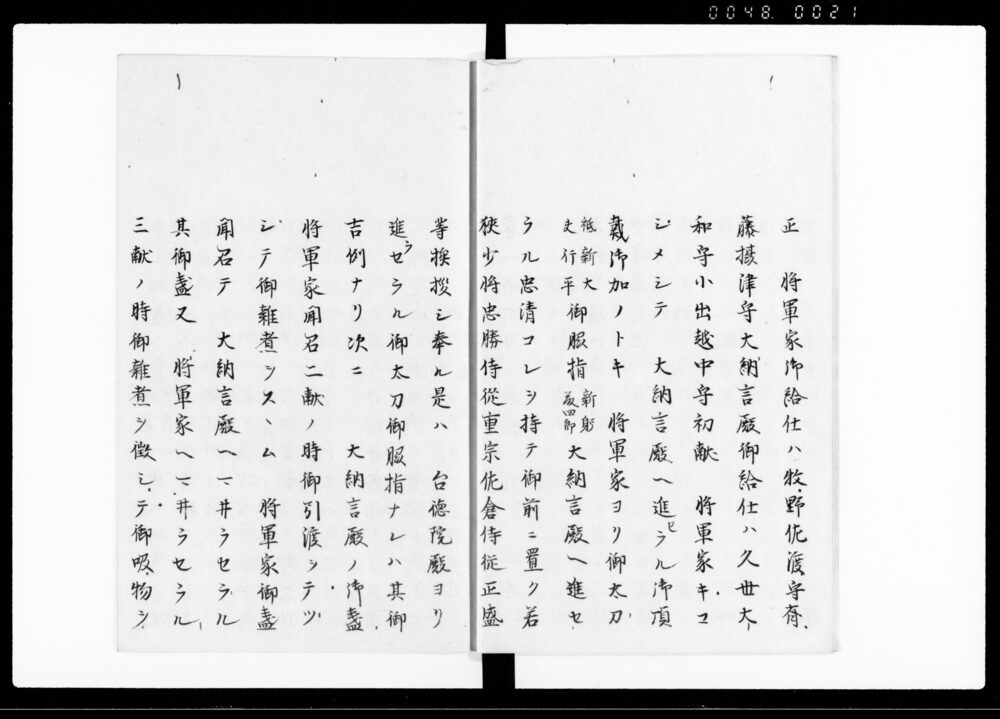 0048. 0021
正　将軍家御給仕ハ牧野佐渡守斎
藤摂津守大納言殿御給仕ハ久世大
和守小出越中守初献　将軍家キコ
シメシテ　大納言殿ヘ進セラル御頂
戴御加ノトキ　将軍家ヨリ御太刀
祗新大
夫行平
御服指
新躬
大納言殿ヘ進セ
ラル忠清コレヲ持テ御前ニ置ク若
狭少将忠勝侍従重宗佐倉侍従正盛
等挨拶シ奉ル是ハ　台徳院殿ヨリ
進セラル御太刀御服指ナレハ其御
吉例ナリ次ニ　大納言殿ノ御盞
将軍家聞召二献ノ時御引渡ヲテツ
シテ御雑煮ヲスヽム　将軍家御盞
聞召テ　大納言殿ヘマ井ラセラル
其御盞又　将軍家ヘマ井ラセラル
三献ノ時御雑煮ヲ徹シテ御吸物ヲ